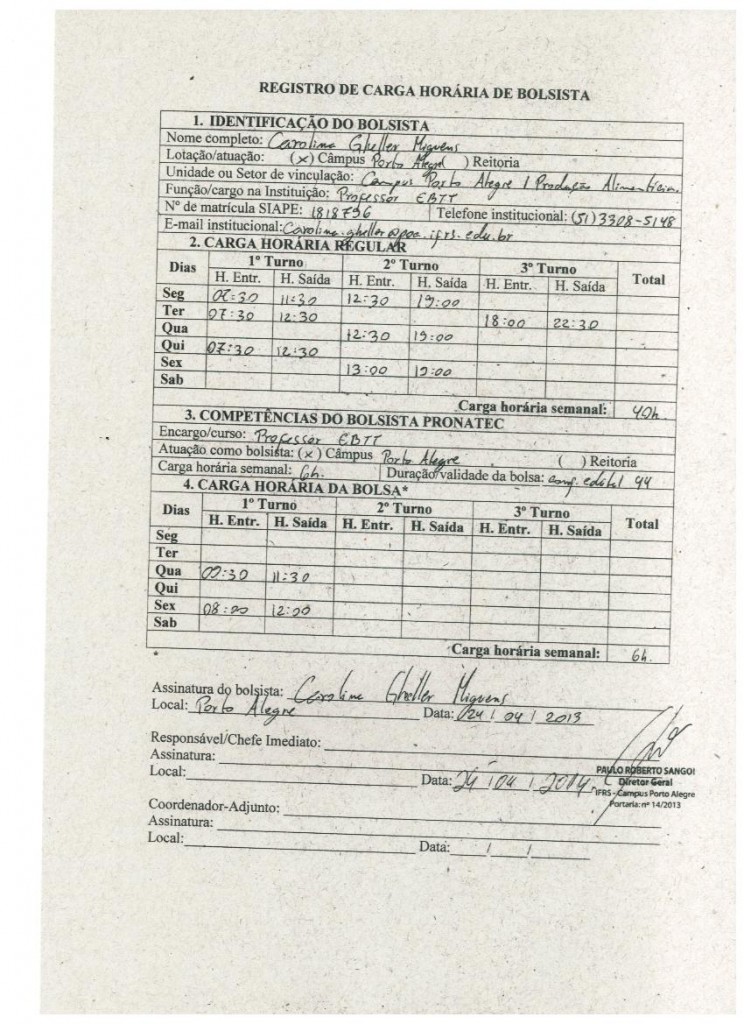 REGISTRO DE CARGA HORÁRIA DE BOLSISTA
1. IDENTIFICAÇÃO DO BOLSISTA
Nome completo: Carolina Gheller Miguens
Lotação/atuação: (x) Câmpus Porto Alegre ) Reitoria
Unidade ou Setor de vinculação: Campus Porto Alegre / Produção Alimentícia
Função/cargo na Instituição: Professor EBTT
Nº de matrícula SIAPE: 1818796 Telefone institucional: (51) 3308-5148
E-mail institucional: Carolina.gheller@poa.ifrs.edu.br
2. CARGA HORÁRIA REGULAR
Dias 1º Turno 2º Turno 3º Turno Total
H. Entr. H. Saída H. Entr. H. Saída H. Entr. H. Saída
Seg 11:30 12:30 19:00
Ter 07:30 12:30 18:00 22:30
Qua 12:30 19:00
Qui 07:30 12:30
Sex 13:00 19:00
Sab
Carga horária semanal: 40h.
3. COMPETÊNCIAS DO BOLSISTA PRONATEC
Encargo/curso: Professor EBTT
Atuação como bolsista: (x) Câmpus Porto Alegre ( ) Reitoria
Carga horária semanal: 6h. Duração/validade da bolsa: conf. edital 44
4. CARGA HORÁRIA DA BOLSA*
Dias 1º Turno 2º Turno 3º Turno Total
H. Entr. H. Saída H. Entr. H. Saída H. Entr. H. Saída
Seg
Ter
Qua 09:30 11:30
Qui
Sex 08:00 12:00
Sab
Carga horária semanal: 6h.
*
Assinatura do bolsista: Carolina Gheller Miguens
Local: Porto Alegre Data: 24/04/2013
Responsável/Chefe Imediato:
Assinatura:
Local: Data: 24/04/2014
PAULO ROBERTO SANGOI
Diretor Geral
IFRS - Campus Porto Alegre
Portaria: nº 14/2013
Coordenador-Adjunto:
Assinatura:
Local: Data: / /